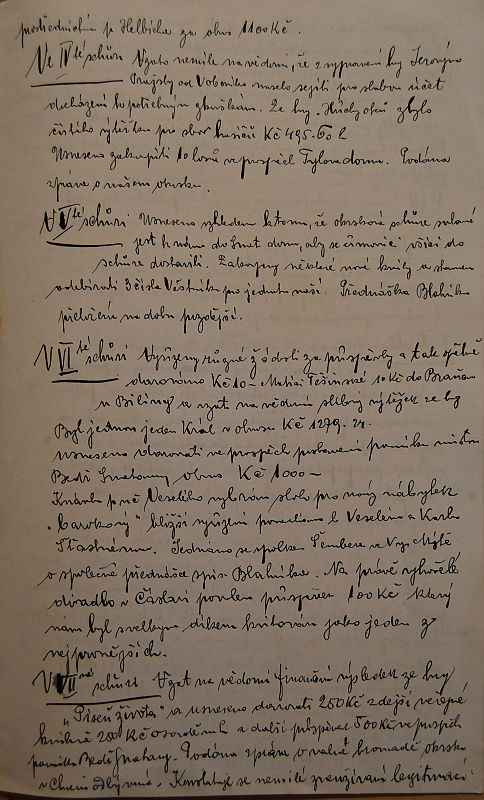 prostřednictvím p. Helbicha za obnos 1100 Kč.
Ve IV té schůzi Vzato nemile na vědomí, že z vypravení hry
Prajsky od muselo sejíti pro slabou účast
docházení ku potřebným zkouškám. Ze hry zbylo
čistého výtěžku pro sbor hasičů Kč 495.60 h
Usneseno zakoupiti 10 losů ve prospěch Tylova domu. Podána
zpráva o našem okrsku.
V V té schůzi Usneseno vzhledem k tomu, že okrsková schůze svolaná
jest k nám do domu, aby se činovníci všici do
schůze dostavili. Zakoupeny některé nové knihy a
odebírati 3 čísla Věstníku pro jednotu naši. Přednáška Blahníka
přeložena na dobu pozdější.
V VI té schůzi Vyřízeny různé žádosti za příspěvky a tak
darováno Kč 10 – Matici Těšínské 10 Kč do
u Bíliny a vzat na vědomí slibný výtěžek ze hry
Byl jednou jeden Král v obnosu Kč 1279. 24.
usneseno darovati ve prospěch postavení pomníku mistru
Bedř Smetanovy obnos Kč 1000 –
p. Veselého vybrán sloh pro nový nábytek
„barokový" bližší vyřízení ponecháno p. Veselému a Karlu
Šťastnému. Jednáno se spolkem Šembera ve Vys. Mýtě
o společné přednášce spis. Blahníka. Na právě vyhořelé
divadlo v Čáslavi povolen příspěvek 100 Kč který
nám byl s velkým díkem kvitován jako jeden z
nejprvnějších.
V VII mé schůzi Vzat na vědomí finanční výsledek ze hry
„Píseň života" a usneseno darovati 250 Kč zdejší veřejné
knihovně 200 Kč a další příspěvek 500 Kč ve prospěch
pomníku Bedř. Smetany. Podána zpráva o valné hromadě okrsku
v Chocni odbývané. Konstatuje se nemilé legitimací